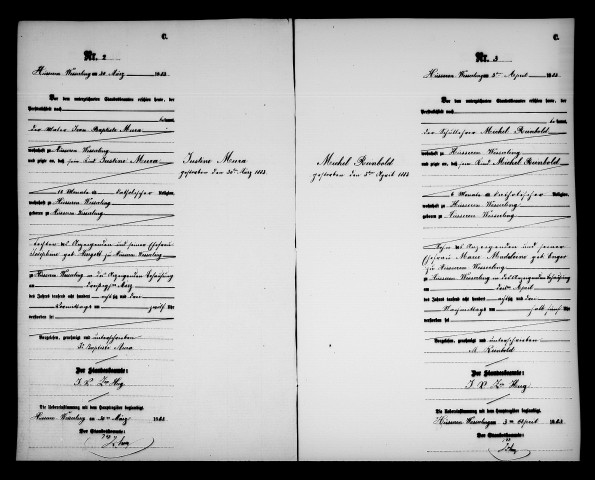 C.
Nr. 2
Husseren Wesserling am 30 März 1883
Vor dem unterzeichneten Standesbeamten erschien heute, der
Persönlichkeit nach
kannt,
der Maler Jean Baptiste Mura
wohnhaft zu Husseren Wesserling
und zeigte an, daß sein Kind Justine Mura
10 Monate alt katholischer Religion,
wohnhaft zu Husseren Wesserling
geboren zu Husseren Wesserling
Tochter des Anzeigenden und seiner Ehefrau
Josephine geb.
zu Husseren Wesserling
zu Husseren Wesserling in des Anzeigenden Behausung
am März
des Jahres tausend acht hundert achtzig und drei
Vormittags um Uhr
verstorben sei
Vorgelesen, genehmigt und unterschrieben
Baptiste Mura
Der Standesbeamte:
Die Uebereinstimmung mit dem Hauptregister beglaubigt.
Husseren Wesserling am 30 März 1883
Der Standesbeamte:
Justine Mura
gestorben den 30 März 1883
Michel Rumbold
gestorben den 5 April 1883
C.
Nr. 3
Husseren Wesserling am April 1883
Vor dem unterzeichneten Standesbeamten erschien heute, der
Persönlichkeit nach
kannt,
der Michel Rumbold
wohnhaft zu Husseren Wesserling
und zeigte an, daß sein Kind Michel Rumbold
6 Monate alt katholischer Religion,
wohnhaft zu Husseren Wesserling
geboren zu Husseren Wesserling
Sohn des Anzeigenden und seiner
Ehefrau Marie Madeleine geb.
zu Husseren Wesserling
zu Husseren Wesserling in des Anzeigenden Behausung
am April
des Jahres tausend acht hundert achtzig und drei
Nachmittags um halb fünf Uhr
verstorben sei
Vorgelesen, genehmigt und unterschrieben
M. Rumbold
Der Standesbeamte:
Die Uebereinstimmung mit dem Hauptregister beglaubigt.
Husseren Wesserling am April 1883
Der Standesbeamte: